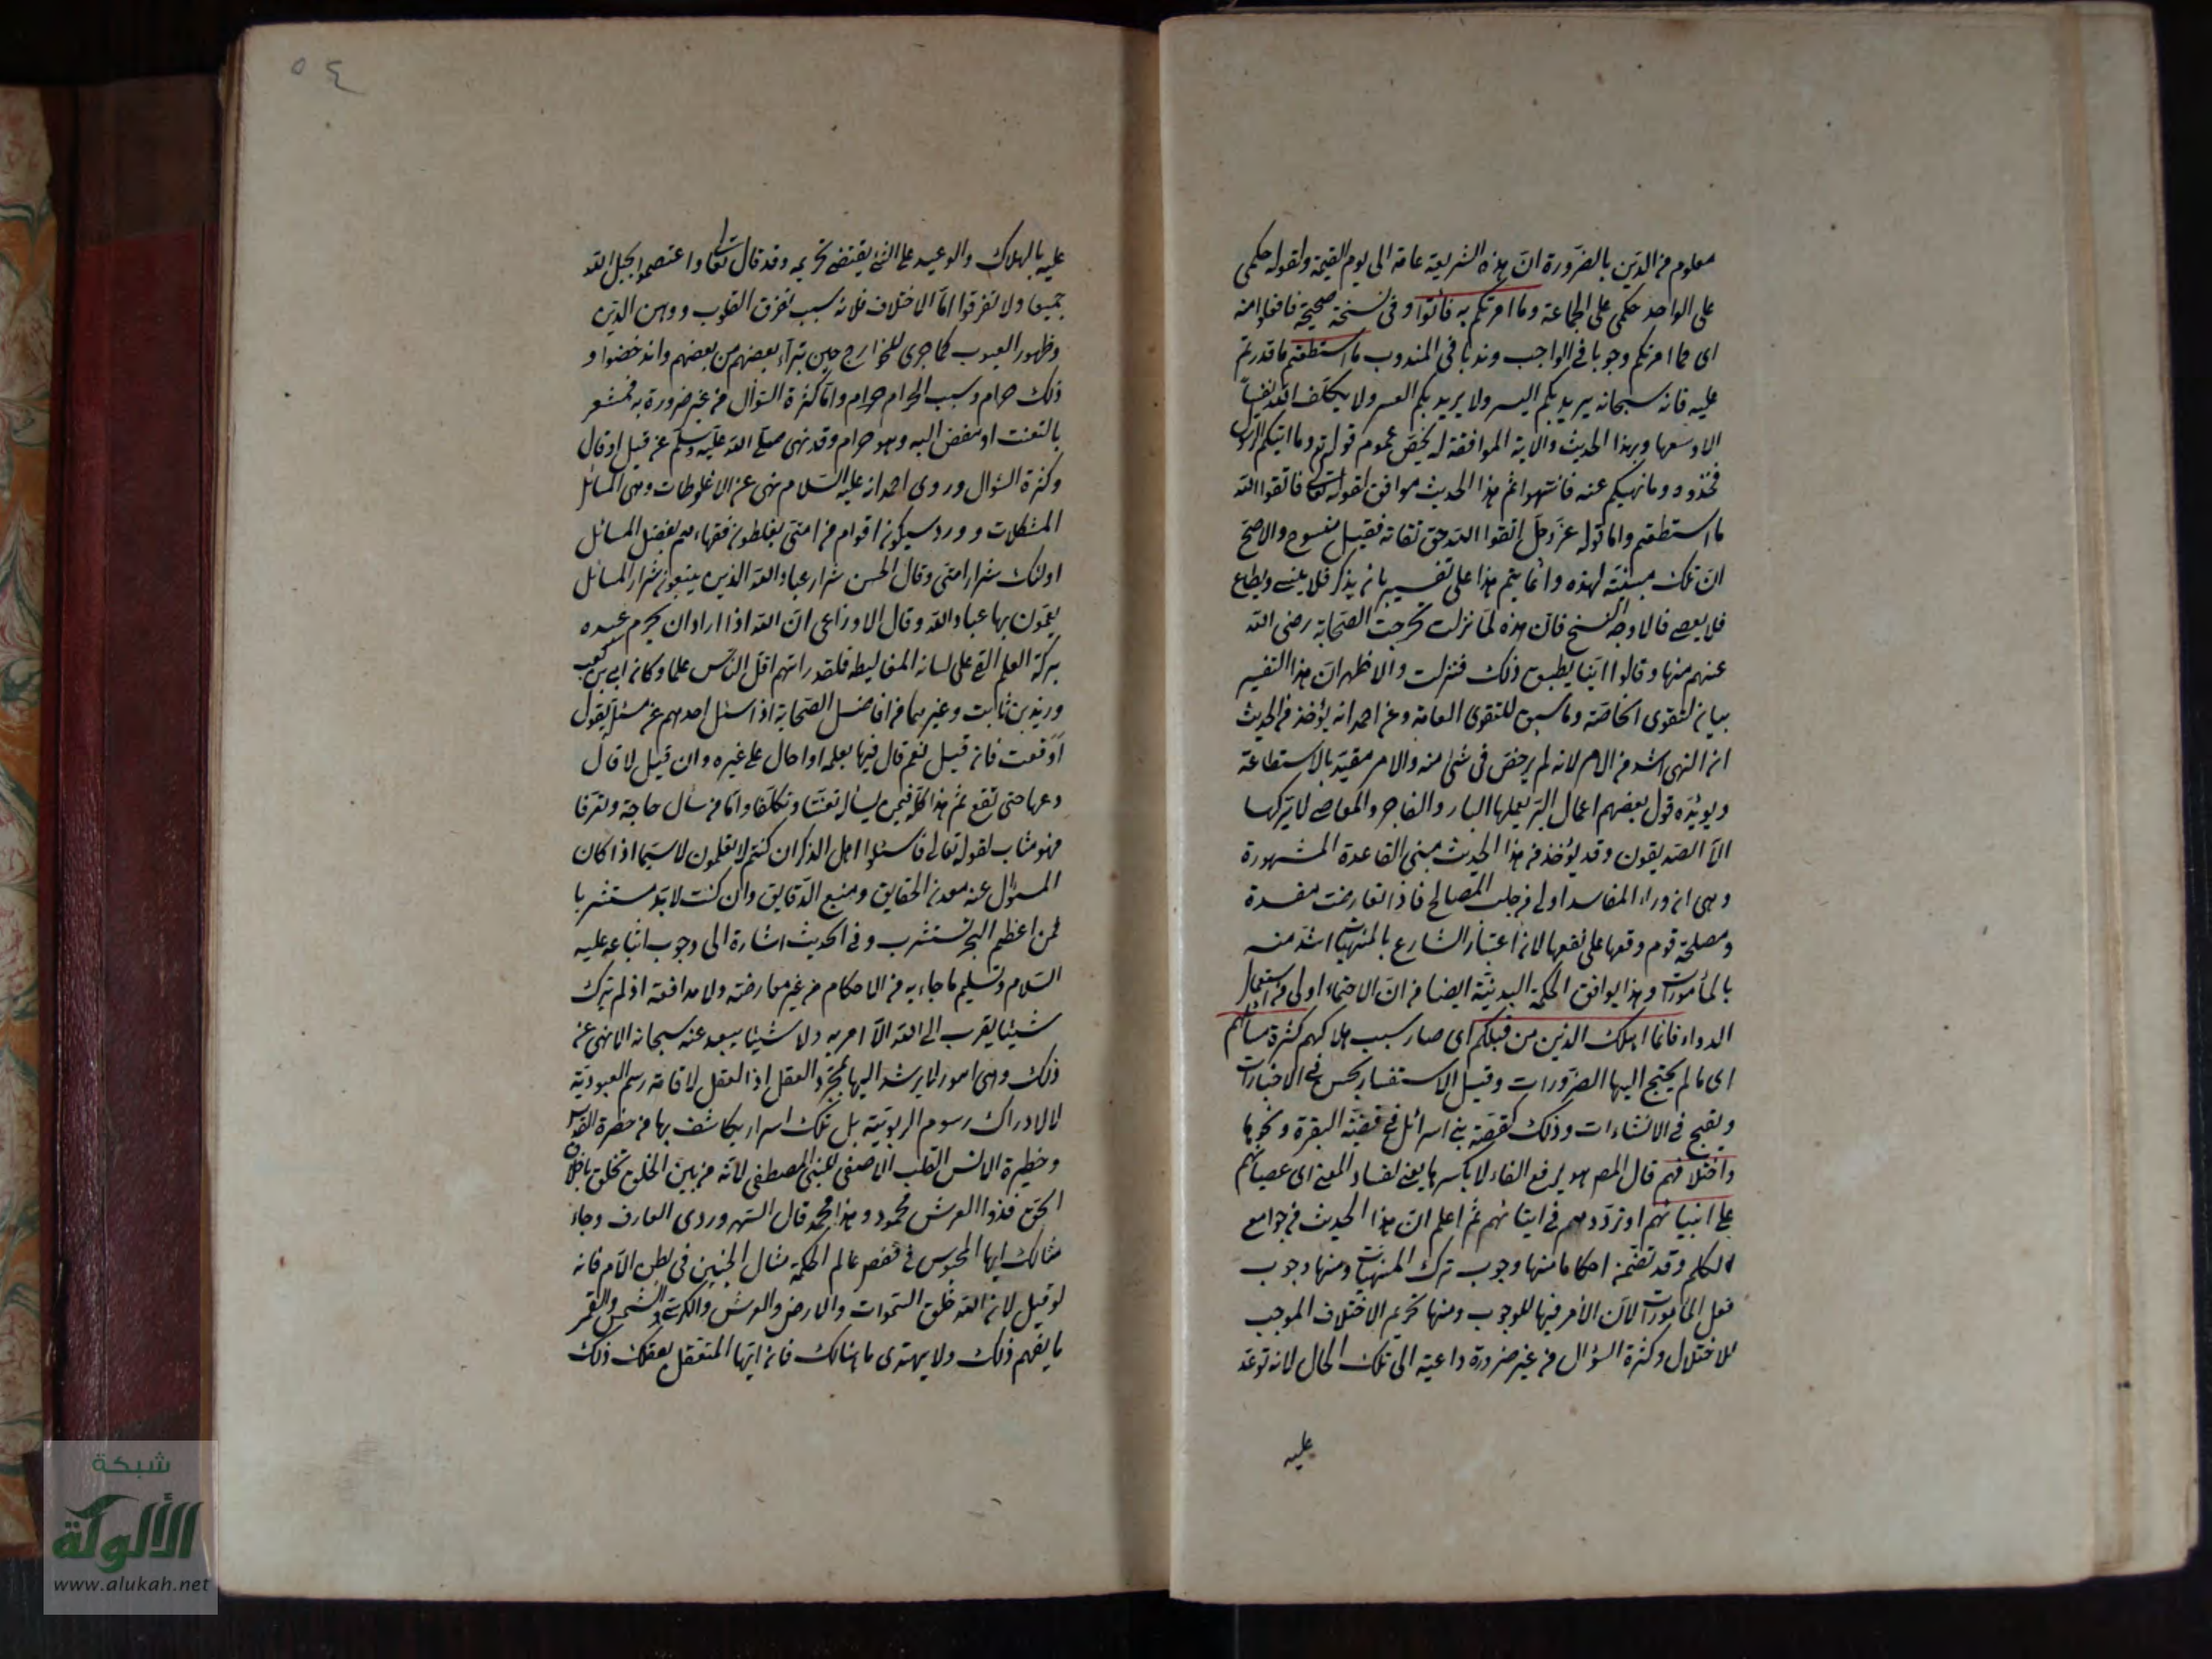 معلوم من الدين بالضرورة ان هذه الشريعة عامة الى يوم القيمة ولقوله حكمى
على الواحد حكمى على الجماعة وما امرتكم به فأتوا وفى نسخة صحيحة فافعلوا منه
اى مما امرتكم وجوبا فى الواجب وندبا فى المندوب ما استطعتم ما قدرتم
عليه فانه سبحانه يريد بكم اليسر ولا يريد بكم العسر ولا يكلف الله نفساً
الا وسعها وبهذا الحديث والاية الموافقة له يخص عموم قوله تع وما اتيكم الرسول
فخذوه وما نهيكم عنه فانتهوا ثم هذا الحديث موافق لقوله تعالى فاتقوا الله
ما استطعتم واما قوله عز وجل اتقوا الله حق تقاته فقيل منسوخ والاصح
ان تلك مبينة لهذه وانما يتم هذا على تفسير بان يذكر فلا ينسى ويطاع
فلا يعصى فالاوجه النسخ فان هذه لما نزلت تحرجت الصحابة رضى الله
عنهم منها وقالوا اينا يطيق ذلك فنزلت والاظهر ان هذا التفسير
بيان لتقوى الخاصة وما سبق للتقوى العامة وعن احمد انه يؤخذ من الحديث
ان النهى اشد من الامر لانه لم يرخص فى شئ منه والامر مقيد بالاستطاعة
ويؤيده قول بعضهم اعمال البر يعملها البار والفاجر والمعاصى لا يتركها
الا الصديقون وقد يؤخذ من هذا الحديث مبنى القاعدة المشهورة
وهى ان دراء المفاسد اولى من جلب المصالح فاذا تعارضت مفسدة
ومصلحة قوم دفعها على نفعها لان اعتبار الشارع بالمنهيات اشد منه
بالمأمورات وهذا يوافق الحكمة البدنية ايضا من ان الاحتماء اولى من استعمال
الدواء فانما اهلك الذين من قبلكم اى صار سبب هلاكهم كثرة مسائلهم
اى ما لم يحتج اليها الضرورات وقيل الاستفسار يحسن فى الاخبارات
ويقبح فى الانشاءات وذلك كقصة بنى اسرائل فى قضية البقرة ونحوها
واختلافهم قال المص هو برفع الفاء لا بكسرها يعنى لفساد المعنى اى عصيانهم
على انبيائهم او ترددهم فى ايتائهم ثم اعلم ان هذا الحديث من جوامع
الكلم وقد تضمن احكاما منها وجوب ترك المنهيات ومنها وجوب
فعل المأمورات لان الأمر فيها للوجوب ومنها تحريم الاختلاف الموجب
للاختلال وكثرة السؤال من غير ضرورة داعية الى تلك الحال لانه توعد
عليه
٥٤
عليه بالهلاك والوعيد على الشئ يقتضى تحريمه وقد قال تعالى واعتصموا بحبل الله
جميعا ولا تفرقوا اما الاختلاف فلانه سبب تفرق القلوب ووهن الدين
وظهور العيوب كما جرى للخوارج حين تبرآء بعضهم من بعضهم واندحضوا و
ذلك حرام وسبب الحرام حرام واما كثرة السؤال من غير ضرورة به فمشعر
بالتعنت او مفض اليه وهو حرام وقد نهى صلى الله عليه وسلم عن قيل او قال
وكثرة السؤال وروى احمد انه عليه السلام نهى عن الاغلوطات وهى المسائل
المشكلات وورد سيكون اقوام من امتى يغلطون فقهاءهم بفضل المسائل
اولئك شرار امتى وقال الحسن شرار عباد الله الذين يتبعون شرار المسائل
يعمون بها عباد الله وقال الاوزاعى ان الله اذا اراد ان يحرم عبده
بركة العلم القى على لسانه المغاليط فلقد راتهم اقل الناس علما وكان ابى بن كعب
وزيد بن ثابت وغيرهما من افاضل الصحابة اذا سئل احدهم عن مسئلة يقول
أوقعت فان قيل نعم قال فيها بعلمه او احال على غيره وان قيل لا قال
دعها حتى تقع ثم هذا كله فيمن يسأل تعنتا وتكلفا واما من سأل حاجة وتعرفا
فهو مثاب لقوله تعالى فاسئلوا اهل الذكر ان كنتم لا تعلمون لا سيما اذا كان
المسؤل عنه معدن الحقايق ومنبع الدقايق وان كنت لا بد مستشربا
فمن اعظم البحر تستشرب وفى الحديث اشارة الى وجوب اتباعه عليه
السلام وتسليم ما جاء به من الاحكام من غير معارضته ولا مدافعة اذ لم يترك
شيئا يقرب الى الله الا امر به ولا شيئا يبعد عنه سبحانه الا نهى عن
ذلك وهى امور لا يرشد اليها بمجرد العقل اذا العقل لاقامة رسم العبودية
لا لادراك رسوم الربوبية بل تلك اسرار يكاشف بها من حضرة القدس
وحظيرة الانس القلب الاصفى للنبى المصطفى لانه من بين الخلق تخلق باخلاق
الحق فذو العرش محمود وهذا محمد قال السهروردى العارف وجاء
مثالك ايها المحبوس فى قفص عالم الحكمة مثال الجنين فى بطن الام فانه
لو قيل له ان الله خلق السموات والارض والعرش والكرسى والشمس والقمر
ما يفهم ذلك ولا يهتدى ما هنالك فان ايها المتعقل بعقلك ذلك
شبكة
الألوكة
www.alukah.net